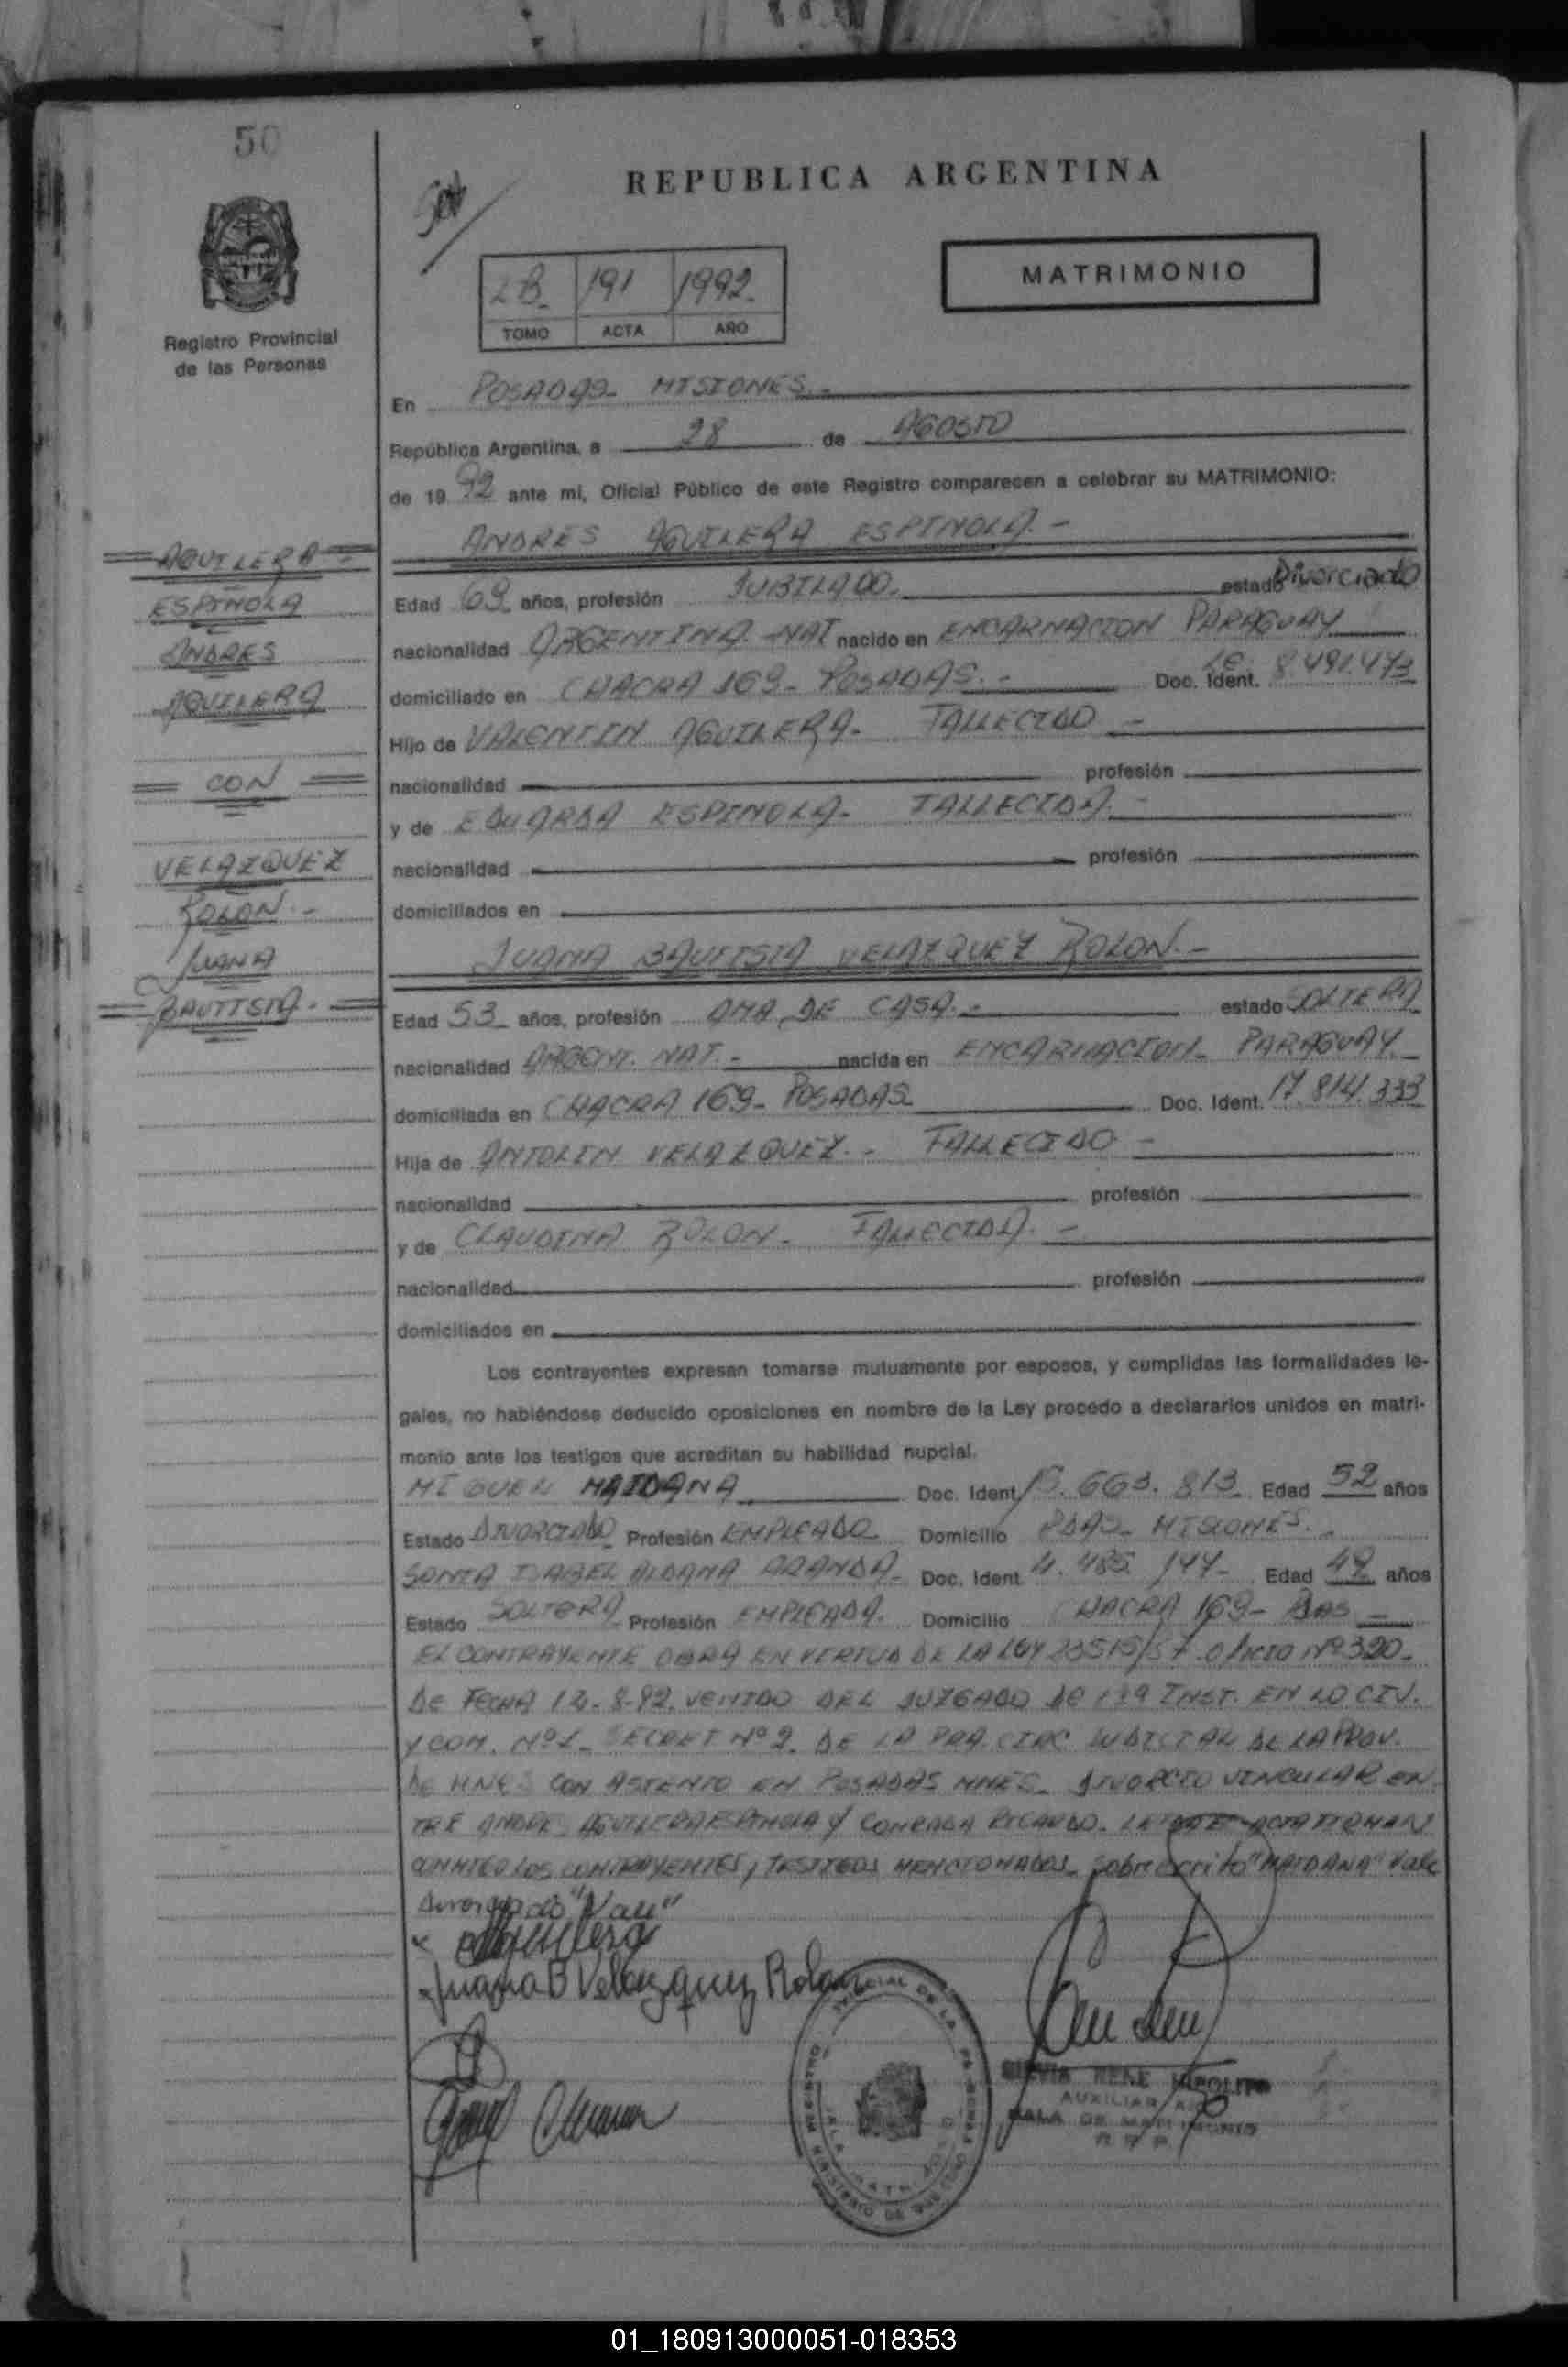 50
REPUBLICA ARGENTINA
2B 191 1992
TOMO ACTA AÑO
MATRIMONIO
Registro Provincial
de las Personas
En POSADAS- MISIONES.-
República Argentina, a 28 de AGOSTO
de 19 92 ante mí, Oficial Público de este Registro comparecen a celebrar su MATRIMONIO:
ANDRES AGUILERA ESPINOLA.-
AGUILERA
ESPINOLA
ANDRES
AGUILERA
CON
VELAZQUEZ
ROLON.-
JUANA
BAUTISTA.-
Edad 69 años, profesión JUBILADO.- estado Divorciado
nacionalidad ARGENTINA NAT nacido en ENCARNACION PARAGUAY
domiciliado en CHACRA 169- POSADAS.- Doc. Ident. LE 8.491.473
Hijo de VALENTIN AGUILERA- FALLECIDO -
nacionalidad profesión
y de EDUARDA ESPINOLA- FALLECIDA.-
nacionalidad profesión
domiciliados en
JUANA BAUTISTA VELAZQUEZ ROLON.-
Edad 53 años, profesión AMA DE CASA.- estado SOLTERA
nacionalidad ARGENT. NAT.- nacida en ENCARNACION- PARAGUAY-
domiciliada en CHACRA 169- POSADAS Doc. Ident. 17.814.333
Hija de ANTOLIN VELAZQUEZ.- FALLECIDO -
nacionalidad profesión
y de CLAUDINA ROLON- FALLECIDA.-
nacionalidad profesión
domiciliados en
Los contrayentes expresan tomarse mutuamente por esposos, y cumplidas las formalidades le-
gales, no habiéndose deducido oposiciones en nombre de la Ley procedo a declararlos unidos en matri-
monio ante los testigos que acreditan su habilidad nupcial.
MIGUEL MAIDANA Doc. Ident. 663.813 Edad 52 años
Estado DIVORCIADO Profesión EMPLEADO Domicilio PDAS- MISIONES.-
ISABEL ALDANA ARANDA- Doc. Ident. 4.485.144- Edad 49 años
Estado SOLTERA Profesión EMPLEADA. Domicilio CHACRA 169- PDAS -
EL CONTRAYENTE OBRA EN VIRTUD DE LA LEY 23515/87 OFICIO Nº 320-
DE FECHA 12-8-92 VENIDO DEL JUZGADO DE 1RA INST. EN LO CIV.
Y COM. Nº1- SECRET Nº 2. DE LA PRA. CIRC JUDICIAL DE LA PROV.
DE MNES CON ASIENTO EN POSADAS MNES- DIVORCIO VINCULAR EN
TRE ANDRES AGUILERA ESPINOLA Y RICARDO. ACTA FIRMAN
CONMIGO LOS CONTRAYENTES, TESTIGOS MENCIONADOS- Sobre escrito "MAIDANA" Vale
"Vale"
Aguilera
Juana B Velazquez Rolon
RENE HIPOLITO
AUXILIAR
SALA DE MATRIMONIO
01_180913000051-018353